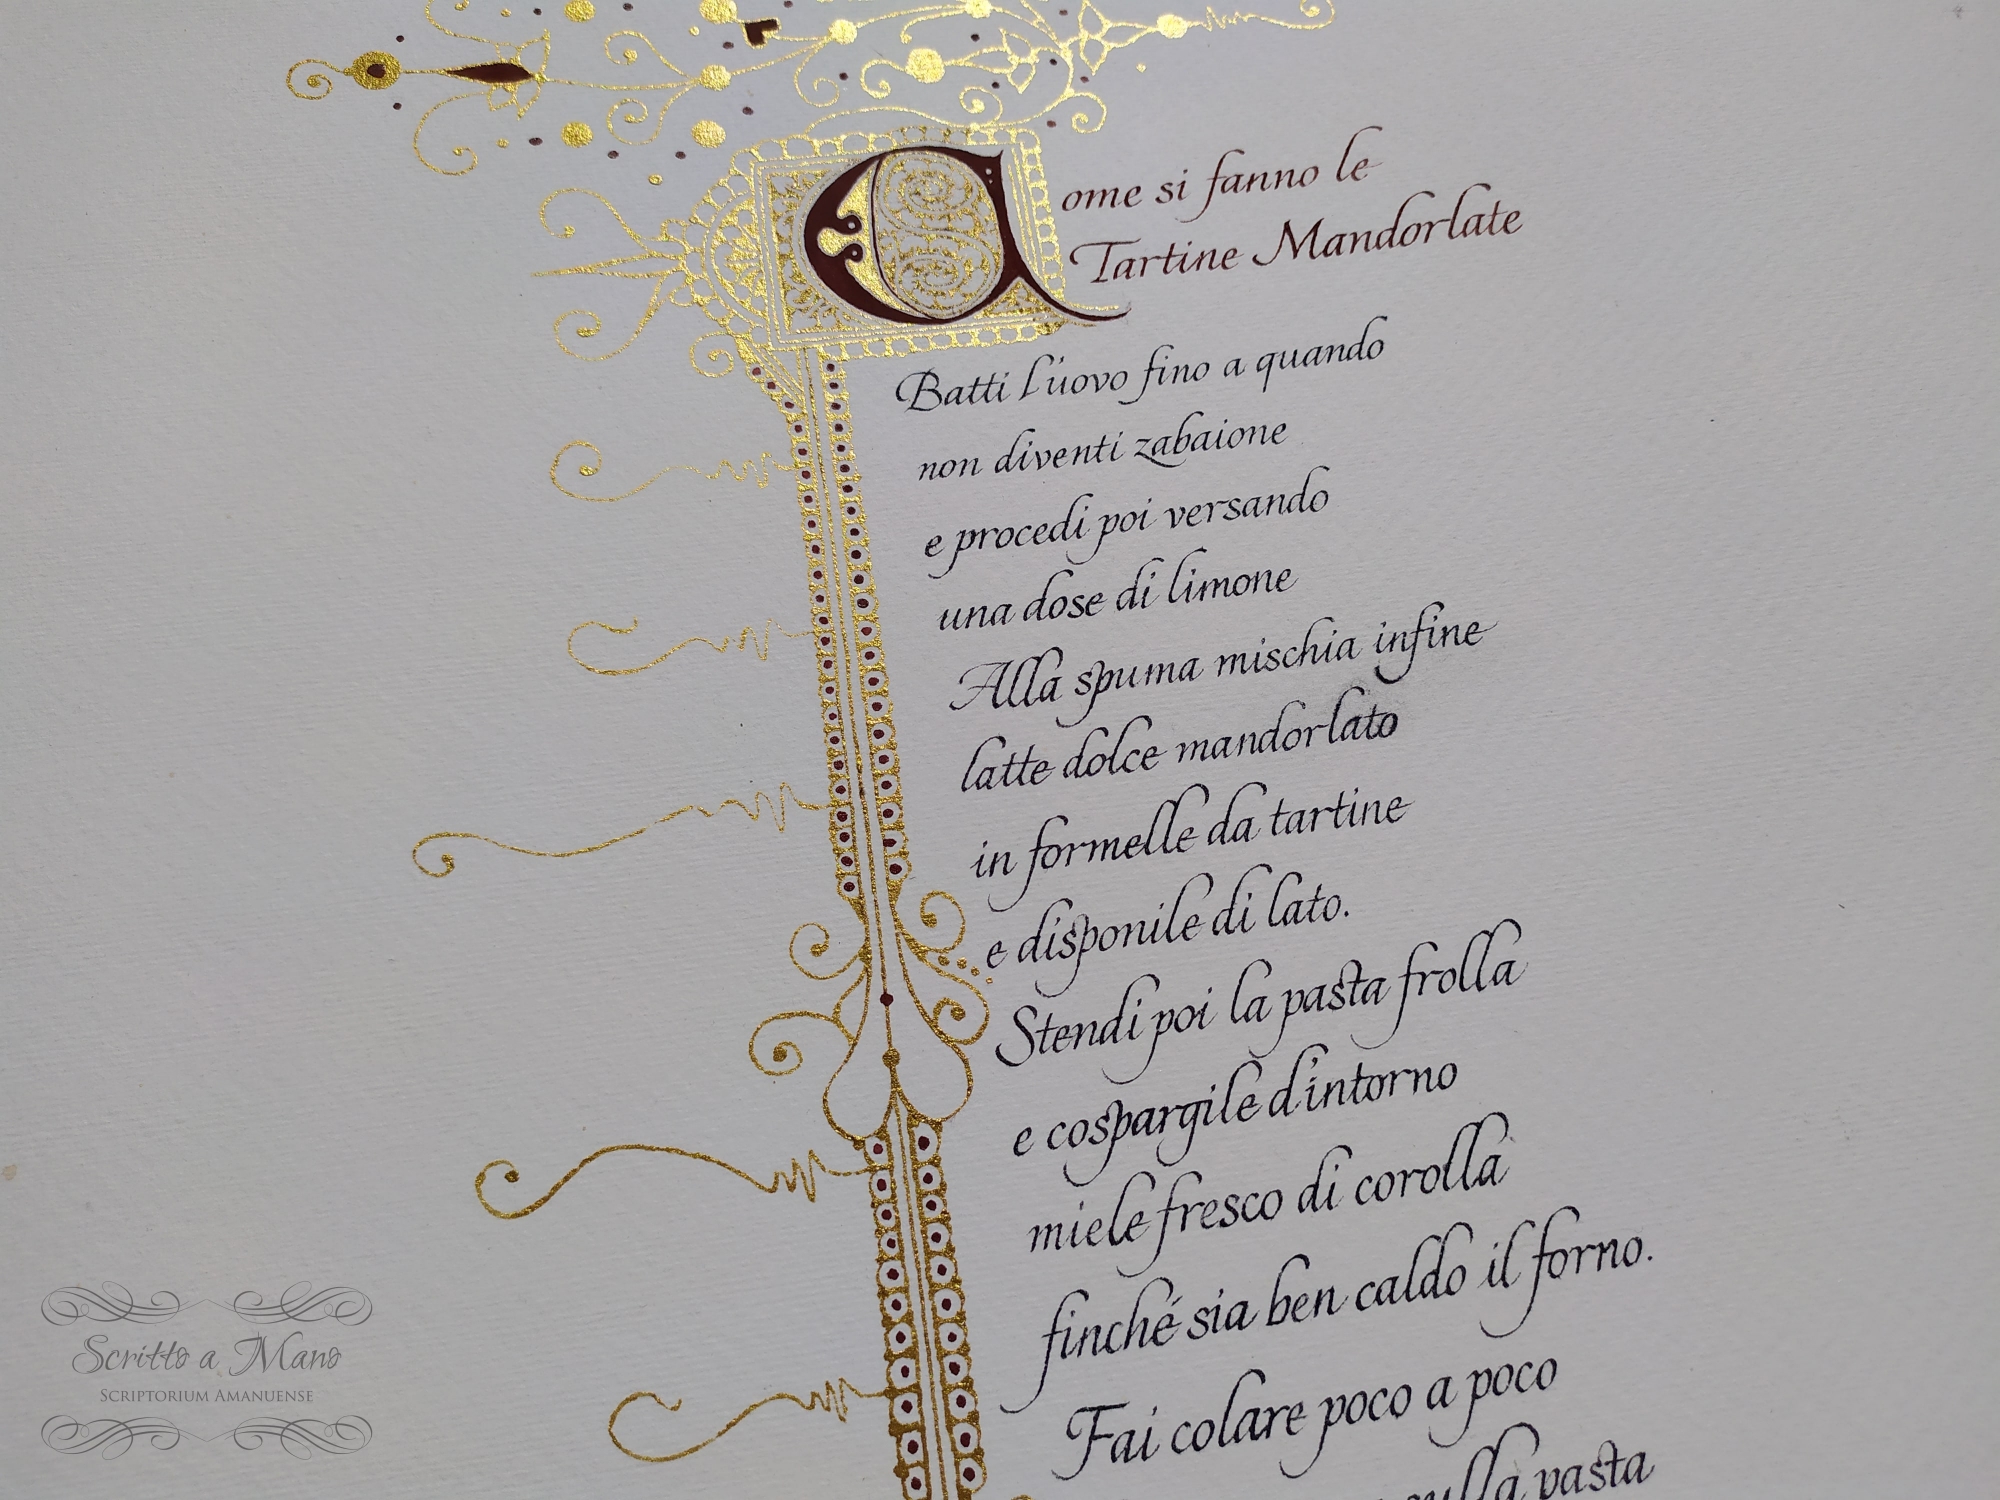 Come si fanno le
Tartine Mandorlate
Batti l'uovo fino a quando
non diventi zabaione
e procedi poi versando
una dose di limone
Alla spuma mischia infine
latte dolce mandorlato
in formelle da tartine
e disponile di lato.
Stendi poi la pasta frolla
e cospargile d'intorno
miele fresco di corolla
finché sia ben caldo il forno.
Fai colare poco a poco
sulla pasta
Scritto a Mano
SCRIPTORIUM AMANUENSE